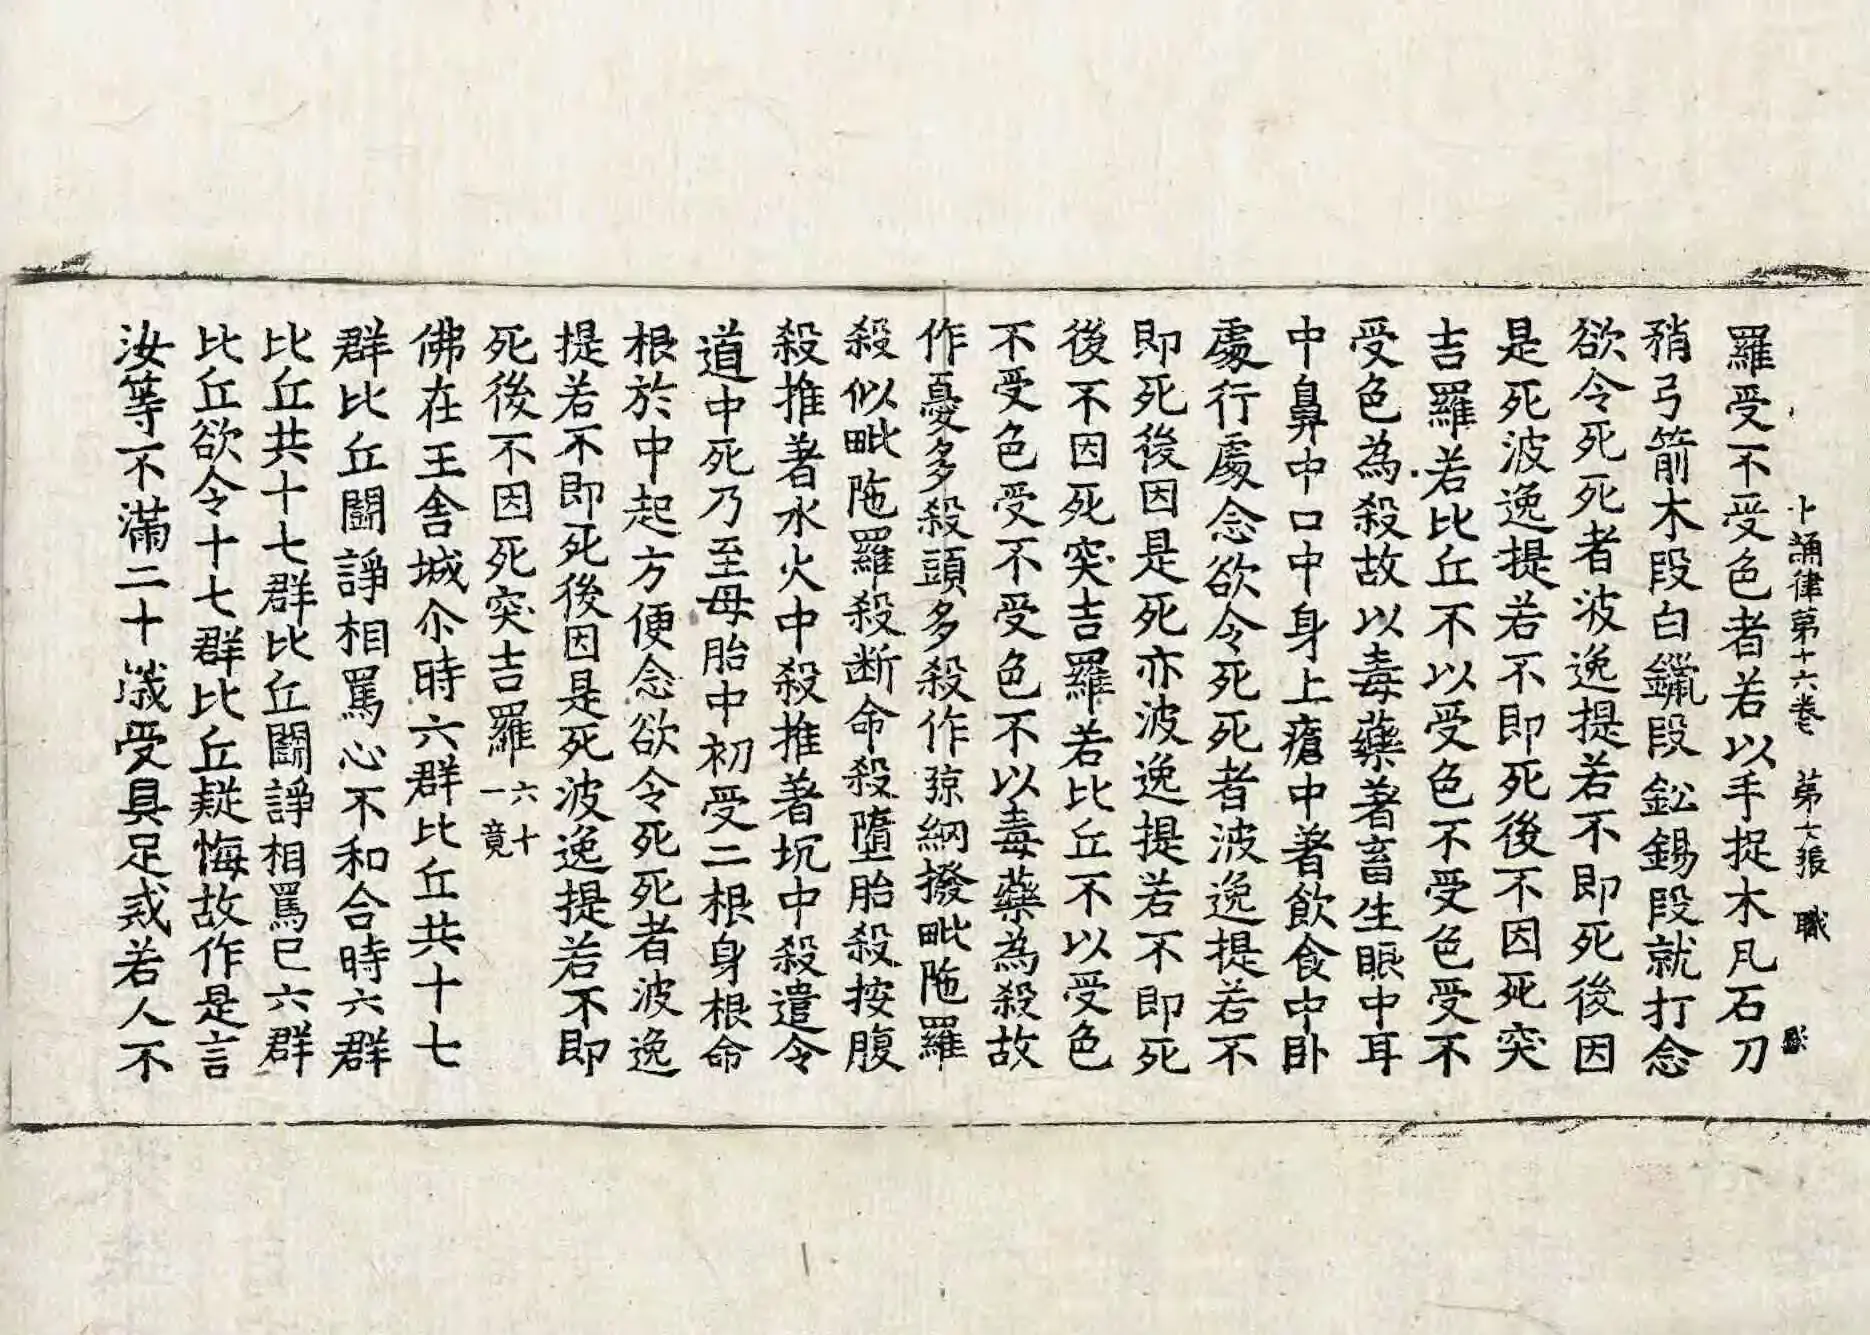 十誦律第十六卷 第七張 職
羅受不受色者若以手捉木凡石刀
矟弓箭木段白鑞段鈆錫段就打念
欲令死死者波逸提若不即死後因
是死波逸提若不即死後不因死突
吉羅若比丘不以受色不受色受不
受色為殺故以毒藥著畜生眼中耳
中鼻中口中身上瘡中著飲食中卧
處行處念欲令死死者波逸提若不
即死後因是死亦波逸提若不即死
後不因死突吉羅若比丘不以受色
不受色受不受色不以毒藥為殺故
作憂多殺頭多殺作弶網撥毗陁羅
殺似毗陁羅殺断命殺墮胎殺按腹
殺推著水火中殺推著坑中殺遣令
道中死乃至母胎中初受二根身根命
根於中起方便念欲令死死者波逸
提若不即死後因是死波逸提若不即
死後不因死突吉羅 六十一竟
佛在王舍城尒時六群比丘共十七
群比丘鬪諍相罵心不和合時六群
比丘共十七群比丘鬪諍相罵已六群
比丘欲令十七群比丘疑悔故作是言
汝等不滿二十歲受具足戒若人不